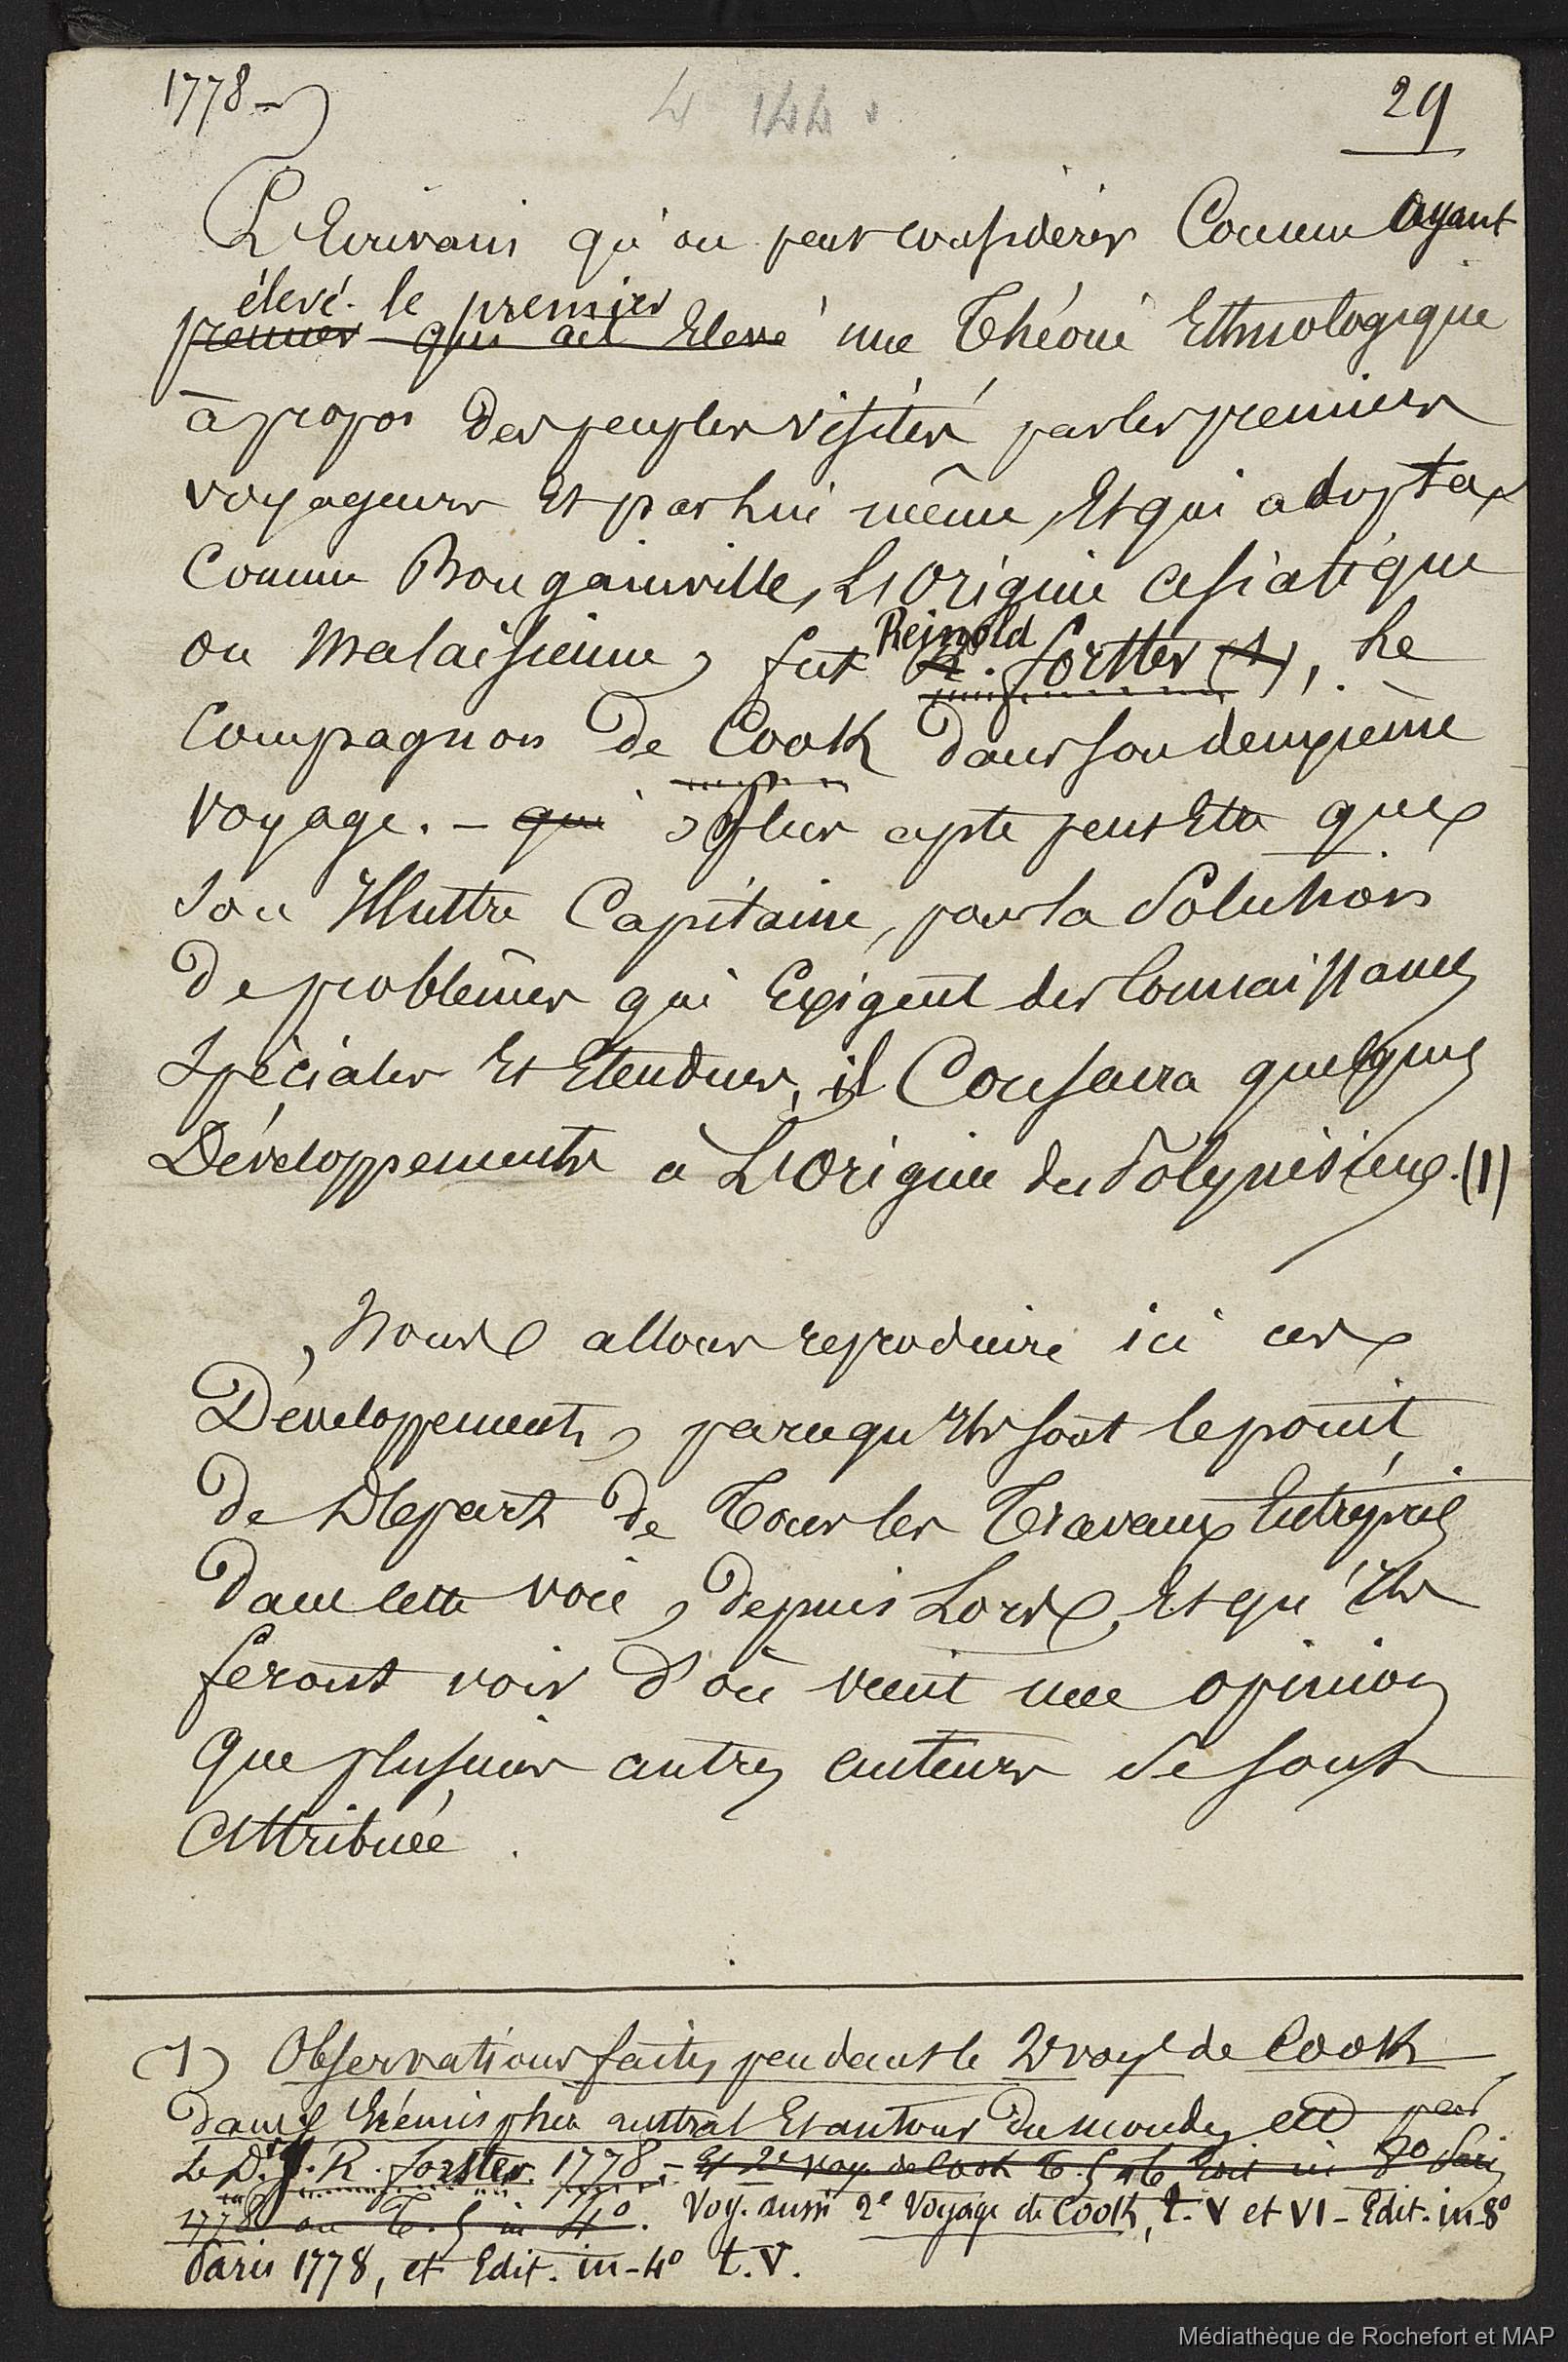 1778 -
4 144.
29
L'Ecrivain qu'on peut considérer Comme ayant
élevé le premier
premier qui ait Elevé une Théorie Ethnologique
à propos des peuples visités par les premiers
voyageurs Et par lui même, Et qui adopta
Comme Bougainville, L'Origine asiatique
ou Malaisienne, fut R. Forster (1), Le
Reinold
Compagnon de Cook dans son deuxième
Voyage. - qui , plus apte peut Etre que
son Illustre Capitaine, pour la Solution
de problêmes qui Exigent des Connaissances
Spéciales Et Etendues, il Consacra quelques
Développements à L'Origine des Polynésiens. (1)
Nous allons reproduire ici ces
Développements, parcequ'Ils sont le point
de Départ de Tous les Travaux Entrepris
dans cette voie, depuis Lors, Et qu'Ils
feront voir d'où vient une opinion
que plusieurs autres auteurs se sont
attribuée.
(1) Observations faites pendant le 2e voye de Cook
dans l'hémisphère austral Et autour du monde, etc par
Le Dr. J. R. Forster. 1778 - Et 2e voy. de Cook T. 5 et 6 Edit in 8o Paris
1778 ou T. 5 in 4o. Voy. aussi 2e Voyage de Cook, t. V et VI - Edit. in-8o
Paris 1778, et Edit. in-4o t. V.
Médiathèque de Rochefort et MAP